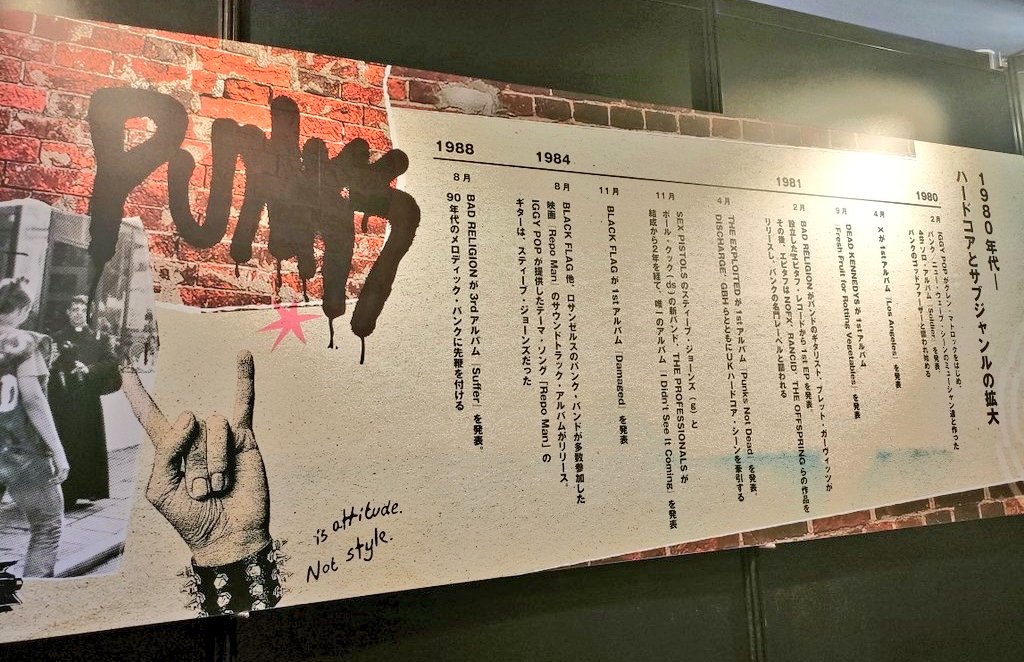 1980年代―
ハードコアとサブジャンルの拡大
1980
2月
IGGY POPがグレン・マトロックをはじめ、
パンク/ニュー・ウェーブ・シーンのミュージシャン達と作った
4thソロ・アルバム『Soldier』を発表。
パンクのゴッドファーザーと言われ始める
4月
Xが1stアルバム『Los Angeles』を発表
9月
DEAD KENNEDYSが1stアルバム
『Fresh Fruit for Rotting Vegetables』を発表
1981
2月
BAD RELIGIONがバンドのギタリスト、ブレット・ガーヴィッツが
設立したエピタフ・レコードから1st EPを発表。
その後、エピタフはNOFX、RANCID、THE OFFSPRINGらの作品を
リリースし、パンクの名門レーベルと謳われる
4月
THE EXPLOITEDが1stアルバム『Punks Not Dead』を発表。
DISCHARGE、GBHらとともにUKハードコア・シーンを牽引する
11月
SEX PISTOLSのスティーブ・ジョーンズ(g)と
ポール・クック(ds)の新バンド、THE PROFESSIONALSが
結成から2年を経て、唯一のアルバム『I Didn't See It Coming』を発表
11月
BLACK FLAGが1stアルバム『Damaged』を発表
1984
8月
BLACK FLAG他、ロサンゼルスのパンク・バンドが多数参加した
映画『Repo Man』のサウンドトラック・アルバムがリリース。
IGGY POPが提供したテーマ・ソング「Repo Man」の
ギターは、スティーブ・ジョーンズだった
1988
8月
BAD RELIGIONが3rdアルバム『Suffer』を発表。
90年代のメロディック・パンクに先鞭を付ける
PUNKS
is attitude.
Not style.